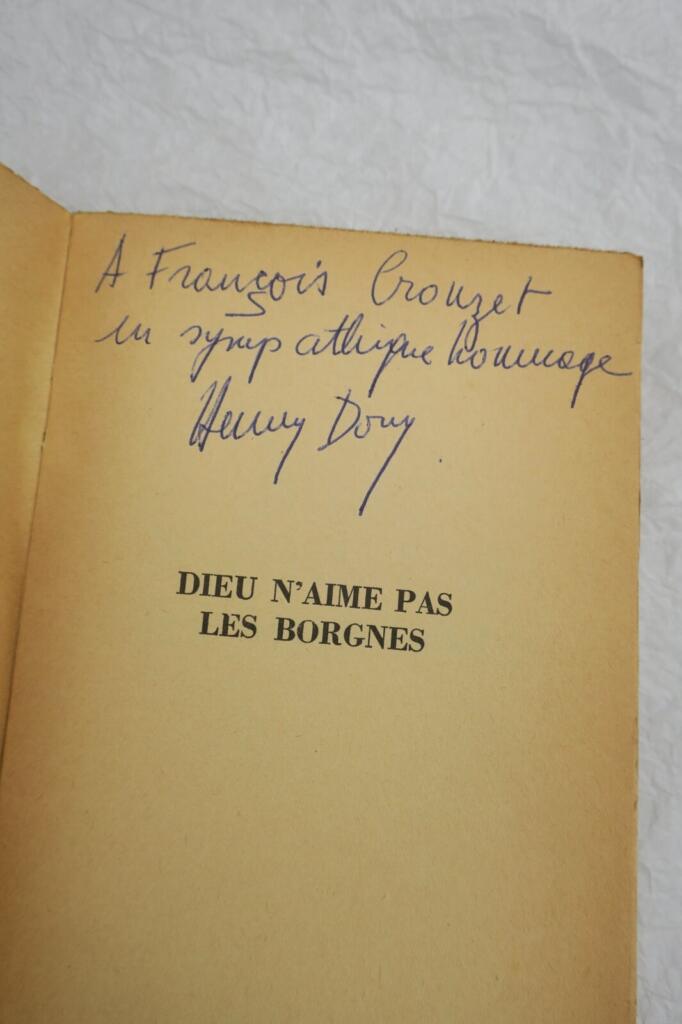 A François Crouzet
en sympathique hommage
Henny Dory
DIEU N'AIME PAS
LES BORGNES